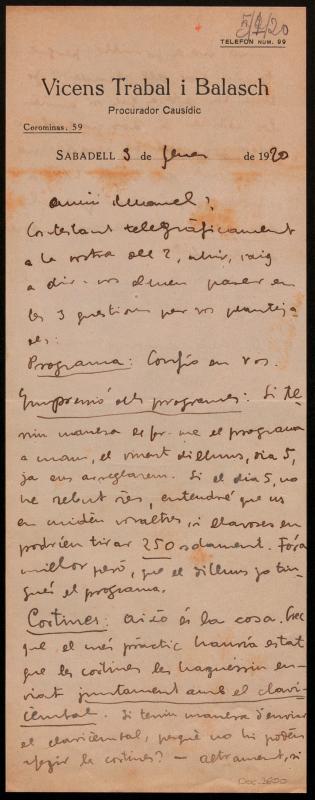 5/1/20
TELEFON NÚM. 99
Vicens Trabal i Balasch
Procurador Causídic
Corominas, 59
SABADELL 3 de Gener de 1920
Amic Manel:
Contestant telegràficament
a la vostra del 2, ahir, vaig
a dir-vos el meu parer en
les 3 qüestions que vos planteja-
eu:
Programa: Confio en vos.
Impressió dels programes: Si te-
niu manera de fer-me el programa
a mans, el vinent dilluns, dia 5,
ja ens arreglarem. Si el dia 5, no
he rebut res, entendré que us
en cuideu vosaltres, i llavores en
podríen tirar 250 solament. Fóra
millor però, que el dilluns jo tin-
gués el programa.
Cortines: Això és la cosa. Crec
que el més pràctic hauria estat
que les cortines les haguessin en-
viat juntament amb el clavi-
cèmbal. Si teniu manera d'enviar
el clavicèmbal, perquè no hi podeu
afegir les cortines? - altrament, si
Doc. 2600